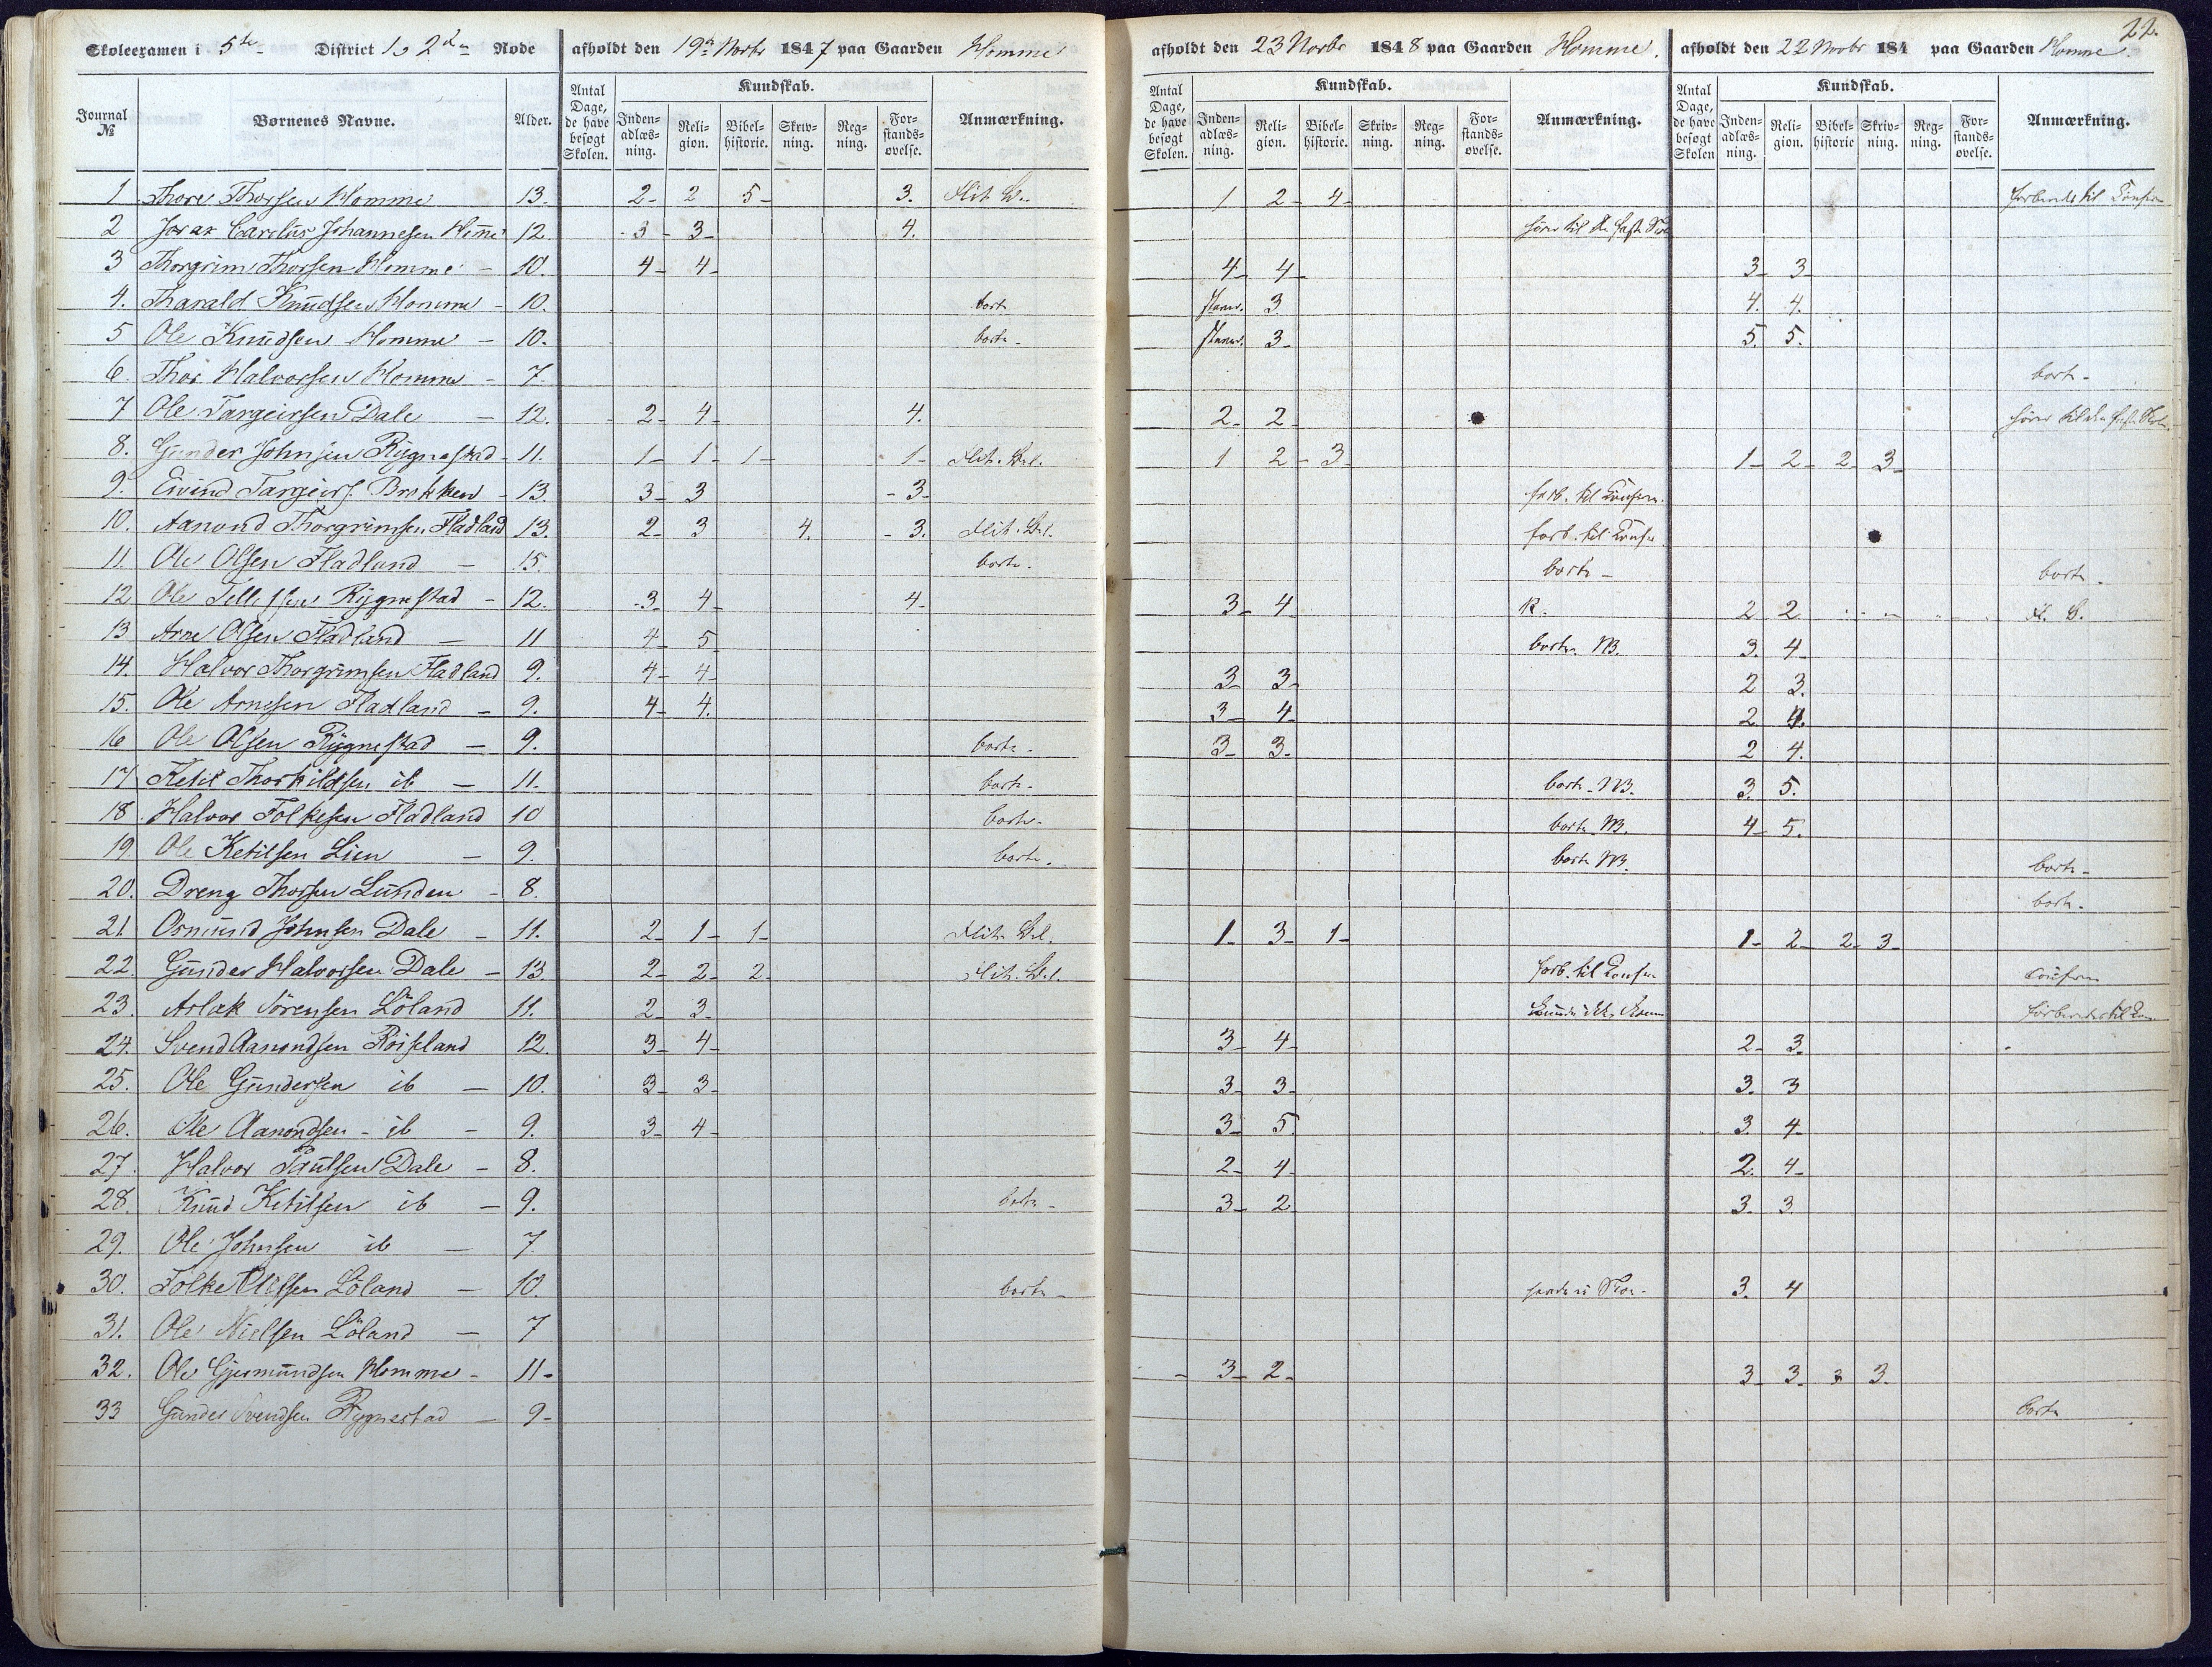 22.
Skoleexamen i 5te District 1 2den Rode afholdt den 19de Novbr 1847 paa Gaarden Homme
afholdt den 23 Novbr 1848 paa Gaarden Homme.
afholdt den 22 Novbr 184 paa Gaarden Homme.
Journal № Børnenes Navne. Alder. Antal Dage, de have besøgt Skolen. Kundskab. Inden-adlæs-ning. Reli-gion. Bibel-historie. Skriv-ning. Reg-ning. For-stands-øvelse. Anmærkning.
Antal Dage, de have besøgt Skolen. Kundskab. Inden-adlæs-ning. Reli-gion. Bibel-historie. Skriv-ning. Reg-ning. For-stands-øvelse. Anmærkning.
Antal Dage, de have besøgt Skolen Kundskab. Inden-adlæs-ning. Reli-gion. Bibel-historie Skriv-ning. Reg-ning. For-stands-øvelse. Anmærkning.
1 Thore Thorsen Homme 13. 2- 2 5- 3. 1 2- 4-
2 Carelius Johannesen 12. 3- 3- 4.
3 Thorgrim Thorsen Homme - 10. 4- 4- 4- 4- 3- 3-
4. Tharald Knudsen Homme - 10. borte 3 4. 4.
5 Ole Knudsen Homme - 10. borte - 3- 5. 5.
6. Thor Halvorsen Homme - 7. borte -
7 Ole Targeirsen Dale - 12. 2- 4- 4. 2- 2-
8. Gunder Johnsen Rygnestad - 11. 1- 1- 1- 1- 1 2- 3- 1- 2- 2- 3-
9. Eivind Targeirs. Brokken - 13. 3- 3 - 3- forb. til Confirm.
10. Aanond Thorgrimsen Fladland 13. 2- 3 4. - 3. forb. til Confir.
11. Ole Olsen Fladland - 15. borte. borte - borte -
12 Ole Rygnestad - 12. 3- 4- 4- 3- 4 2 2
13 Arne Olsen Fladland - 11 4- 5 borte. NB. 3. 4-
14. Halvor Thorgrimsen Fladland 9. 4- 4- 3- 3- 2 3.
15. Ole Arnesen Fladland - 9. 4- 4. 3- 4- 2 4.
16 Ole Olsen Rygnestad - 9. borte. 3- 3- 2 4.
17 Ketil Thorkildsen ib - 11. borte. borte. NB. 3. 5.
18. Halvor Folkesen Fladland 10 borte. borte NB. 4- 5.
19. Ole Ketilsen Lien - 9. borte. borte NB. borte -
20. Dreng Thorsen Lunden - 8. borte.
21 Osmund Johnsen Dale - 11. 2- 1- 1- 1- 3- 1- 1- 2- 2- 3-
22. Gunder Halvorsen Dale - 13 2- 2- 2- forb. til Confir
23. Aslak Sørensen Löland 11. 2- 3-
24. Svend Aanondsen Röiseland 12. 3- 4- 3- 4- 2- 3.
25. Ole Gundersen ib - 10. 3- 3- 3- 3- 3. 3
26. Ole Aanondsen - ib - 9. 3- 4- 3- 5. 3. 4-
27. Halvor Paulsen Dale - 8. 2- 4- 2. 4-
28. Knud Ketilsen ib - 9. borte - 3- 2 3. 3
29. Ole Johnsen ib - 7.
30. Folke Löland - 10. borte - 3. 4
31. Ole Nielsen Löland - 7
32. Ole Gjermundsen Homme - 11- 3- 2- 3- 3- 3 3.
33 Gunder Svendsen Rygnestad - 9- borte